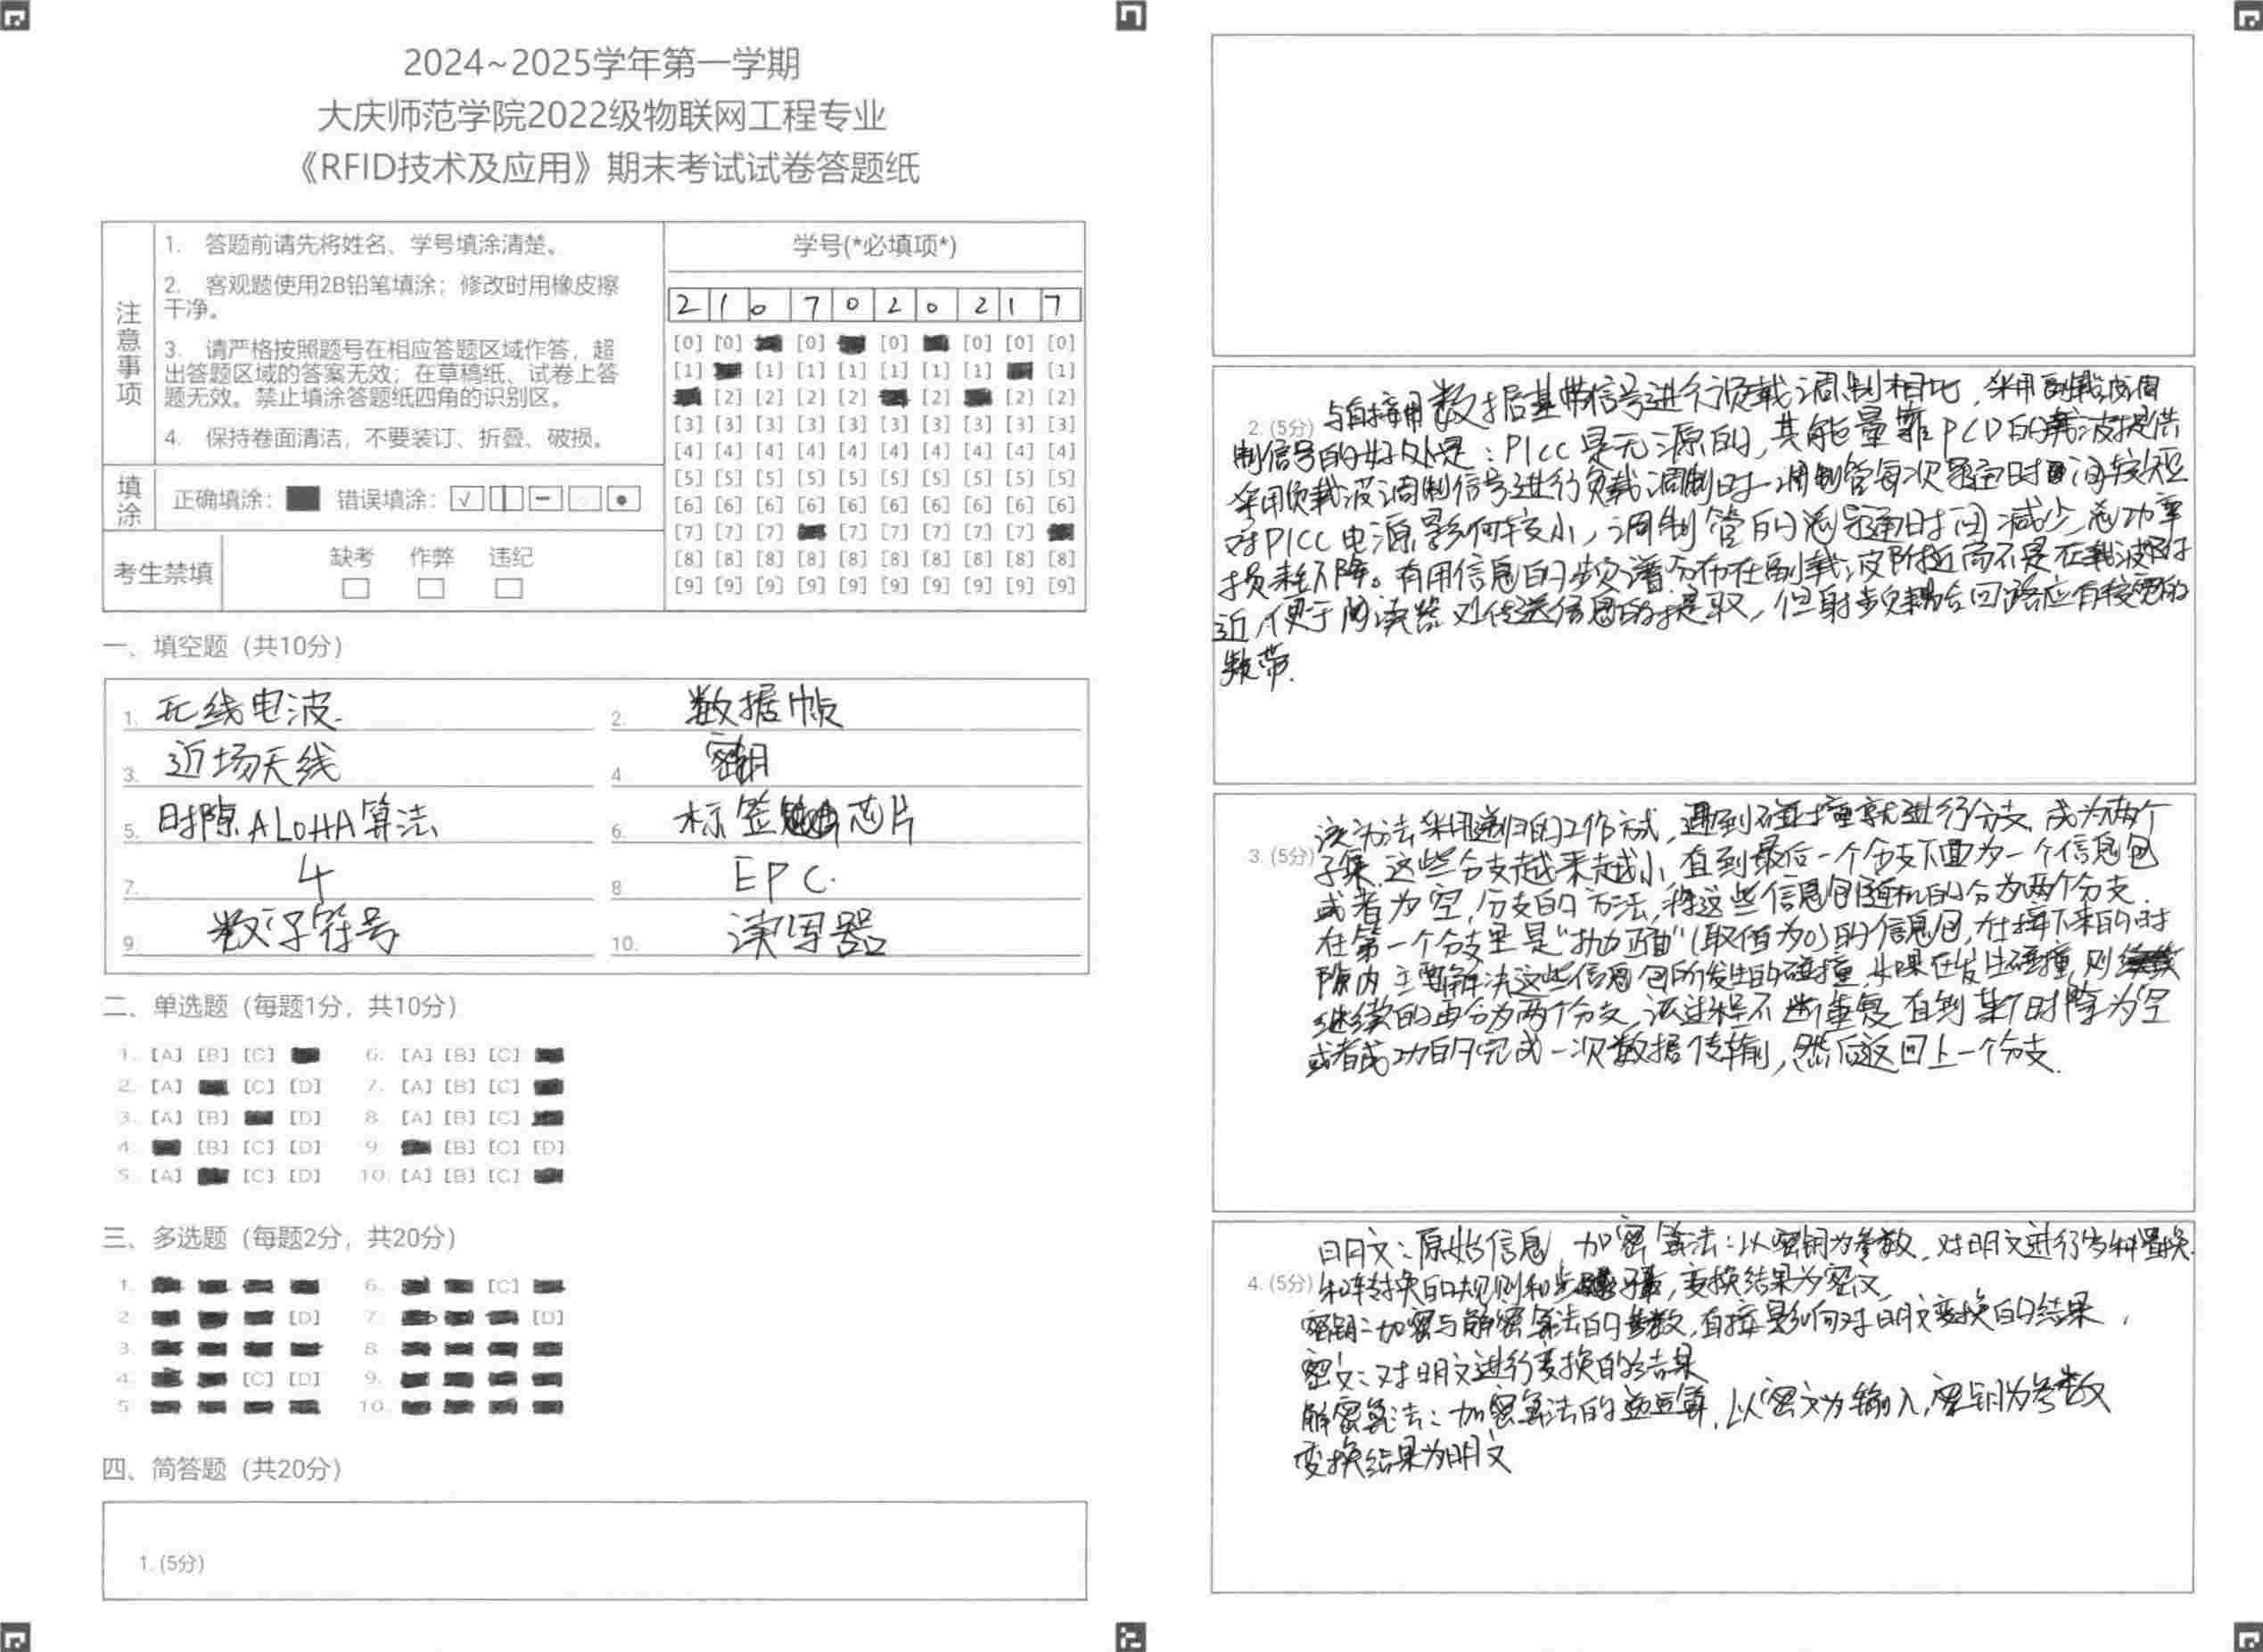 2024~2025学年第一学期
大庆师范学院2022级物联网工程专业
《RFID技术及应用》期末考试试卷答题纸
注意事项
1. 答题前请先将姓名、学号填涂清楚。
2. 客观题使用2B铅笔填涂；修改时用橡皮擦
干净。
3. 请严格按照题号在相应答题区域作答，超
出答题区域的答案无效；在草稿纸、试卷上答
题无效。禁止填涂答题纸四角的识别区。
4. 保持卷面清洁，不要装订、折叠、破损。
填涂
正确填涂： 错误填涂：
考生禁填
缺考 作弊 违纪
学号(*必填项*)
2 1 0 7 0 2 0 2 1 7
[0] [0] [0] [0] [0] [0] [0]
[1] [1] [1] [1] [1] [1] [1] [1]
[2] [2] [2] [2] [2] [2] [2]
[3] [3] [3] [3] [3] [3] [3] [3] [3] [3]
[4] [4] [4] [4] [4] [4] [4] [4] [4] [4]
[5] [5] [5] [5] [5] [5] [5] [5] [5] [5]
[6] [6] [6] [6] [6] [6] [6] [6] [6] [6]
[7] [7] [7] [7] [7] [7] [7] [7]
[8] [8] [8] [8] [8] [8] [8] [8] [8] [8]
[9] [9] [9] [9] [9] [9] [9] [9] [9] [9]
一、填空题（共10分）
1. 无线电波. 2. 数据帧
3. 近场天线 4. 密钥
5. 时隙ALOHA算法 6. 标签芯片
7. 4 8. EPC.
9. 数字符号 10. 读写器
二、单选题（每题1分，共10分）
1. [A] [B] [C] 6. [A] [B] [C]
2. [A] [C] [D] 7. [A] [B] [C]
3. [A] [B] [D] 8. [A] [B] [C]
4. [B] [C] [D] 9. [B] [C] [D]
5. [A] [C] [D] 10. [A] [B] [C]
三、多选题（每题2分，共20分）
1. 6. [C]
2. [D] 7. [D]
3. 8.
4. [C] [D] 9.
5. 10.
四、简答题（共20分）
1. (5分)
2. (5分)
与直接用数据基带信号进行负载调制相比，采用副载波调
制信号的好处是：PICC是无源的，其能量靠PCD的载波提供
采用负载波调制信号进行负载调制时，调制管每次导通时间较短
对PICC电源影响较小，调制管的总导通时间减少，总功率
损耗下降。有用信息的频谱分布在副载波附近而不是在载波附
近，便于阅读器对传送信息的提取，但射频耦合回路应有较宽的
频带.
3. (5分)
该方法采用递归的工作方式，遇到碰撞就进行分支，成为两个
子集.这些分支越来越小，直到最后一个分支下面为一个信息包
或者为空，分支的方法，将这些信息包随机的分为两个分支.
在第一个分支里是“抛正面”(取值为0)的信息包，在接下来的时
隙内，主要解决这些信息包所发生的碰撞，如果在发生碰撞，则
继续的再分为两个分支，该过程不断重复，直到某个时隙为空
或者成功的完成一次数据传输，然后返回上一个分支.
4. (5分)
明文：原始信息 加密算法：以密钥为参数，对明文进行多种置换
和转换的规则和步骤，变换结果为密文
密钥：加密与解密算法的参数，直接影响对明文变换的结果，
密文：对明文进行变换的结果
解密算法：加密算法的逆运算，以密文为输入，密钥为参数
变换结果为明文